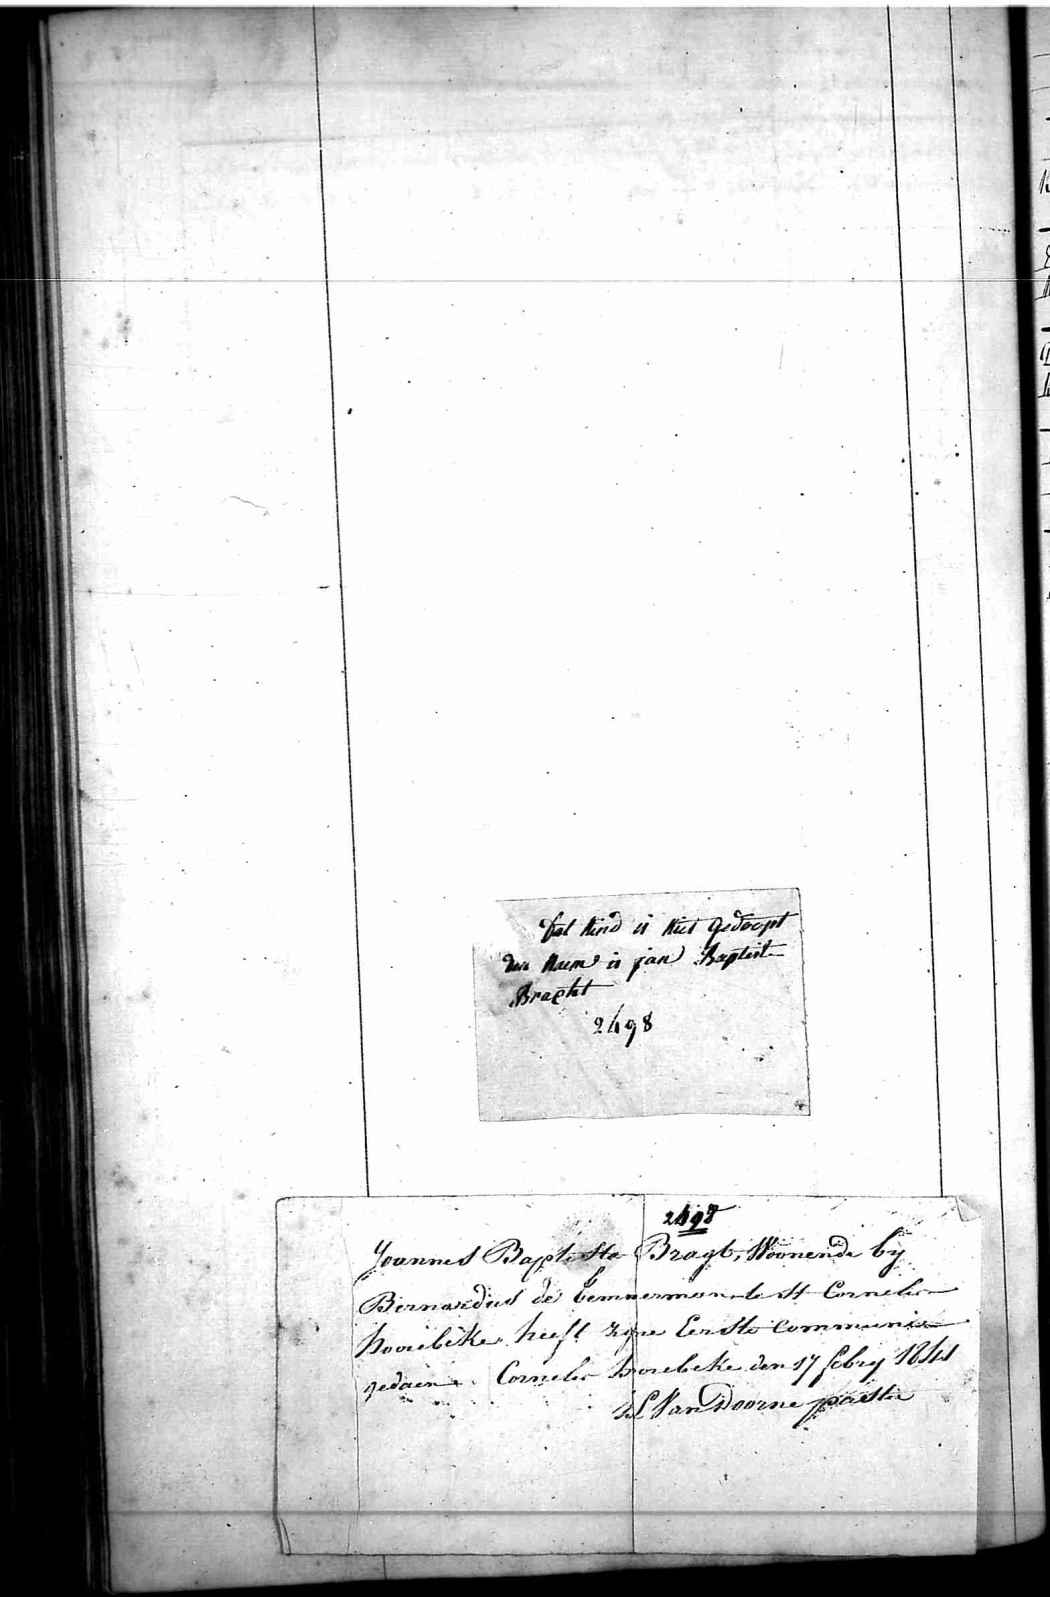 Dat Kind is Niet Gedoopt
den Naem is jan Baptist
Bracht
2498
2498
Joannes Baptiste Bragt, Woonende by
Bernardus de Temmerman te St Cornelis
hoorebeke heeft zyne Eerste communie
gedaen. Cornelis hoorebeke den 17 febry 1841
Van Doorne pastor